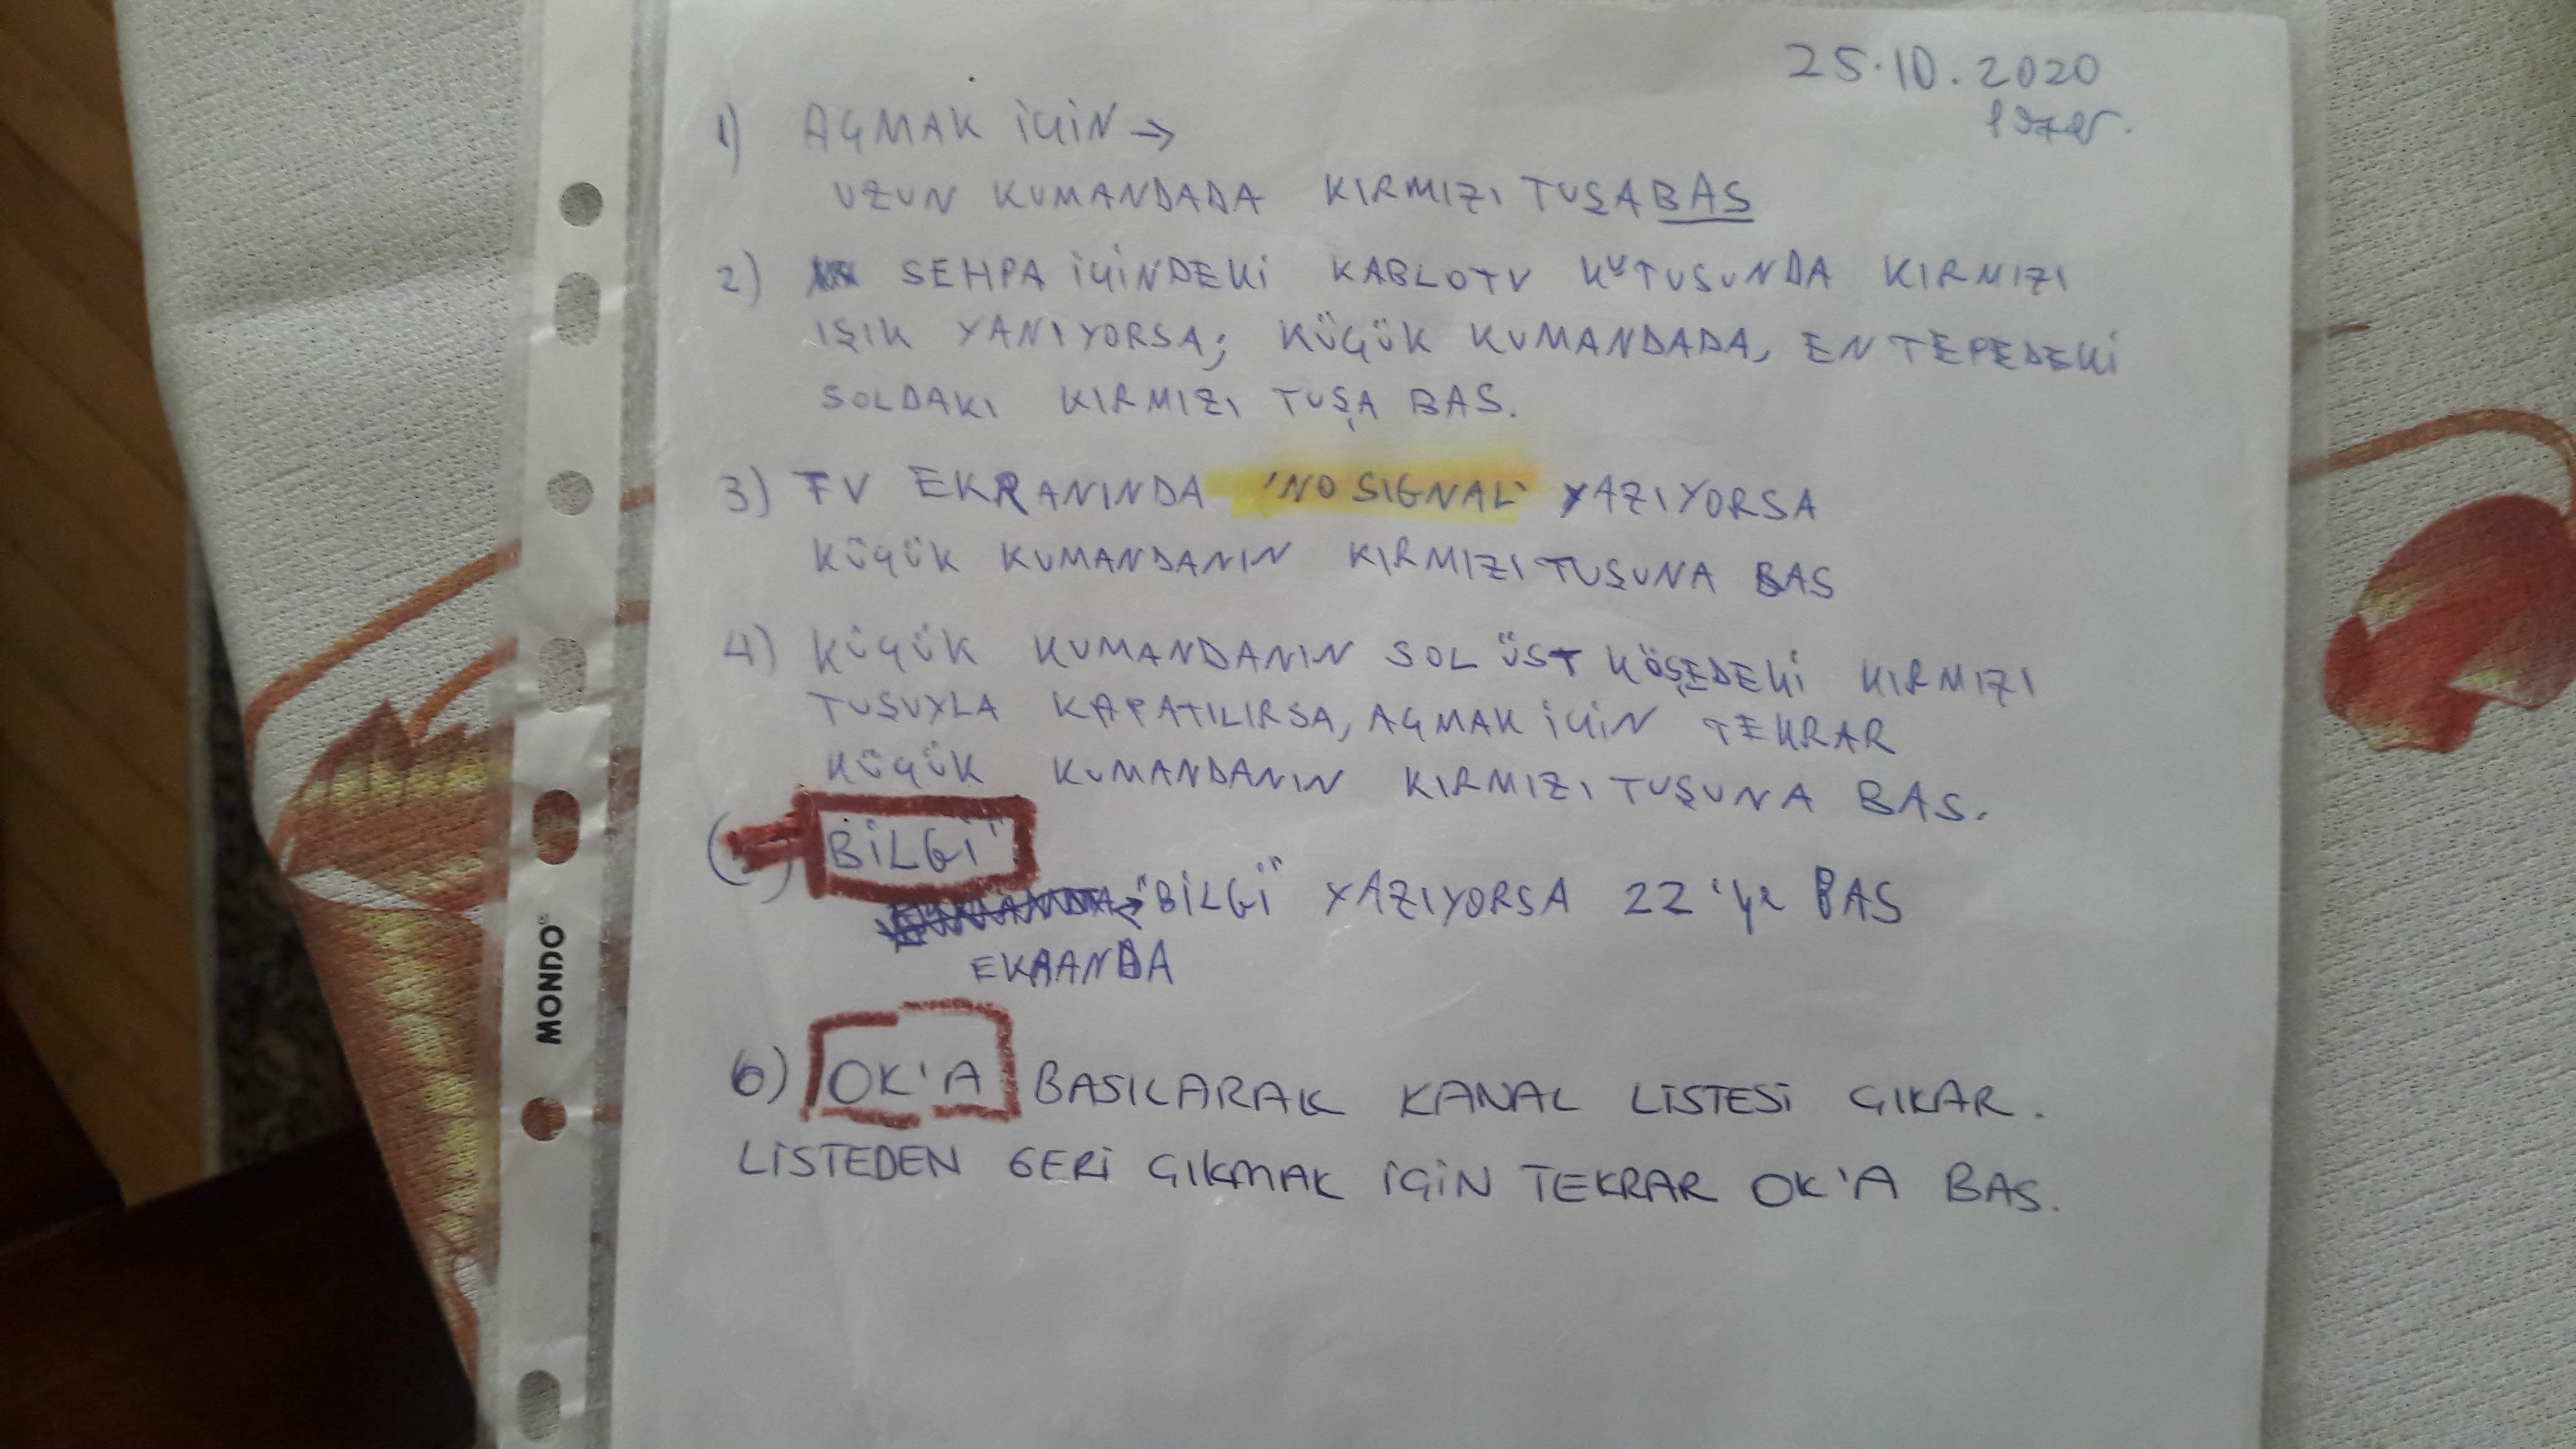 25.10.2020
1) AÇMAK İÇİN →
UZUN KUMANDADA KIRMIZI TUŞA BAS
2) SEHPA İÇİNDEKİ KABLOTV KUTUSUNDA KIRMIZI
IŞIK YANIYORSA; KÜÇÜK KUMANDADA, EN TEPEDEKİ
SOLDAKI KIRMIZI TUŞA BAS.
3) TV EKRANINDA 'NO SIGNAL' YAZIYORSA
KÜÇÜK KUMANDANIN KIRMIZI TUŞUNA BAS
4) KÜÇÜK KUMANDANIN SOL ÜST KÖŞEDEKİ KIRMIZI
TUŞUYLA KAPATILIRSA, AÇMAK İÇİN TEKRAR
KÜÇÜK KUMANDANIN KIRMIZI TUŞUNA BAS.
BİLGİ"
→ "BİLGİ" YAZIYORSA 22'ye BAS
EKRANDA
6) OK'A BASILARAK KANAL LİSTESİ ÇIKAR.
LİSTEDEN GERİ ÇIKMAK İÇİN TEKRAR OK'A BAS.
MONDO